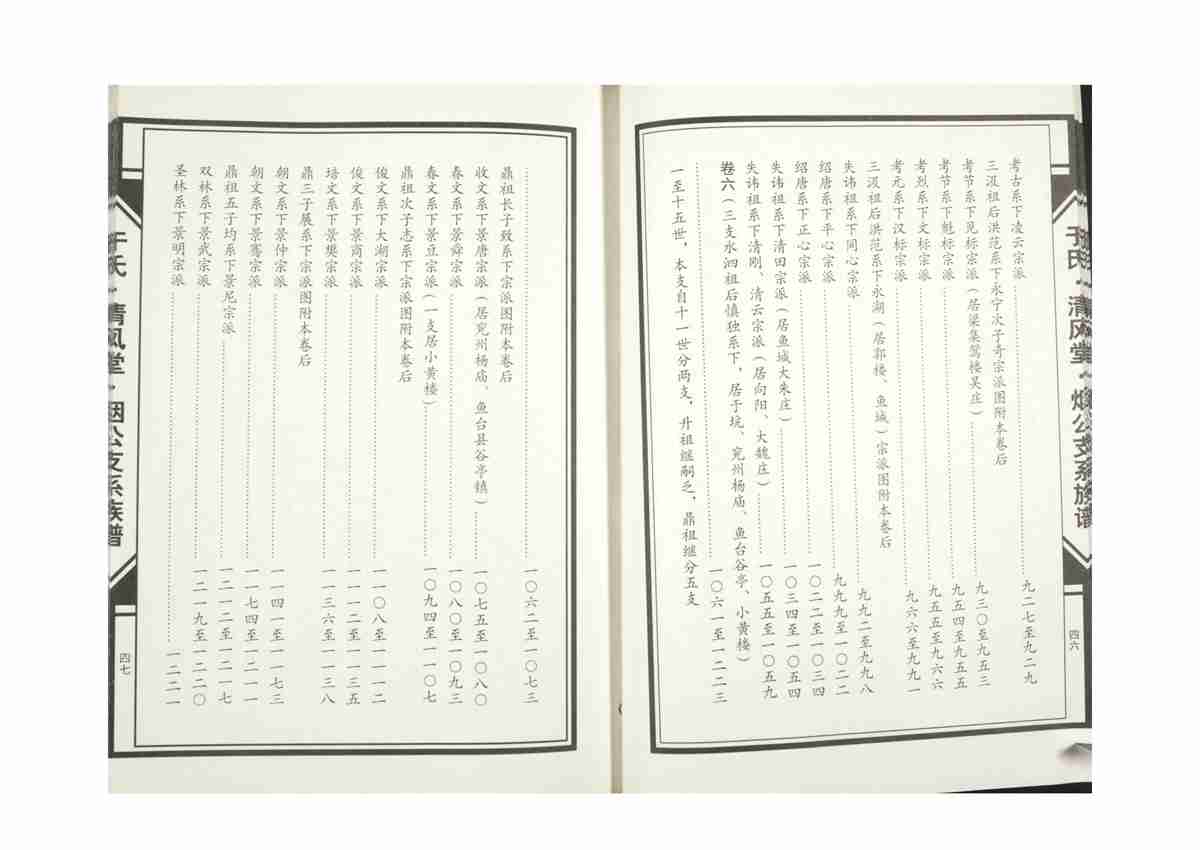 于氏·清风堂·烟公支系族谱
四六
考古系下凌云宗派……九二七至九二九
三汲祖后洪范系下永宁次子奇宗派图附本卷后
考节系下见标宗派(居梁集莺楼吴庄)……九三〇至九五三
考节系下魁标宗派……九五四至九五五
考烈系下文标宗派……九五五至九六六
考元系下汉标宗派……九六六至九九一
三汲祖后洪范系下永湖(居郭楼、鱼城)宗派图附本卷后
失讳祖系下同心宗派……九九二至九九八
绍唐系下平心宗派……九九九至一〇二二
绍唐系下正心宗派……一〇二二至一〇三四
失讳祖系下清田宗派(居鱼城大朱庄)……一〇三四至一〇五四
失讳祖系下清刚、清云宗派(居向阳、大魏庄)……一〇五五至一〇五九
卷六(三支水泗祖后慎独系下,居于坑、兖州杨庙、鱼台谷亭、小黄楼)
……一〇六一至一二二三
一至十五世,本支自十一世分两支,升祖继嗣乏,鼎祖继分五支
鼎祖长子致系下宗派图附本卷后
……一〇六二至一〇七三
收文系下景唐宗派(居兖州杨庙、鱼台县谷亭镇)……一〇七五至一〇八〇
春文系下景舜宗派……一〇八〇至一〇九三
春文系下景豆宗派(一支居小黄楼)……一〇九四至一一〇七
鼎祖次子志系下宗派图附本卷后
俊文系下大湖宗派……一一〇八至一一一二
俊文系下景商宗派……一一一二至一一三五
培文系下景樊宗派……一一三六至一一三八
鼎三子展系下宗派图附本卷后
朝文系下景仲宗派……一一四一至一一七三
朝文系下景骞宗派……一一七四至一二一一
鼎祖五子均系下景尼宗派……一二一二至一二一七
双林系下景武宗派……一二一九至一二二〇
圣林系下景明宗派……一二二一
于氏·清风堂·烟公支系族谱
四七